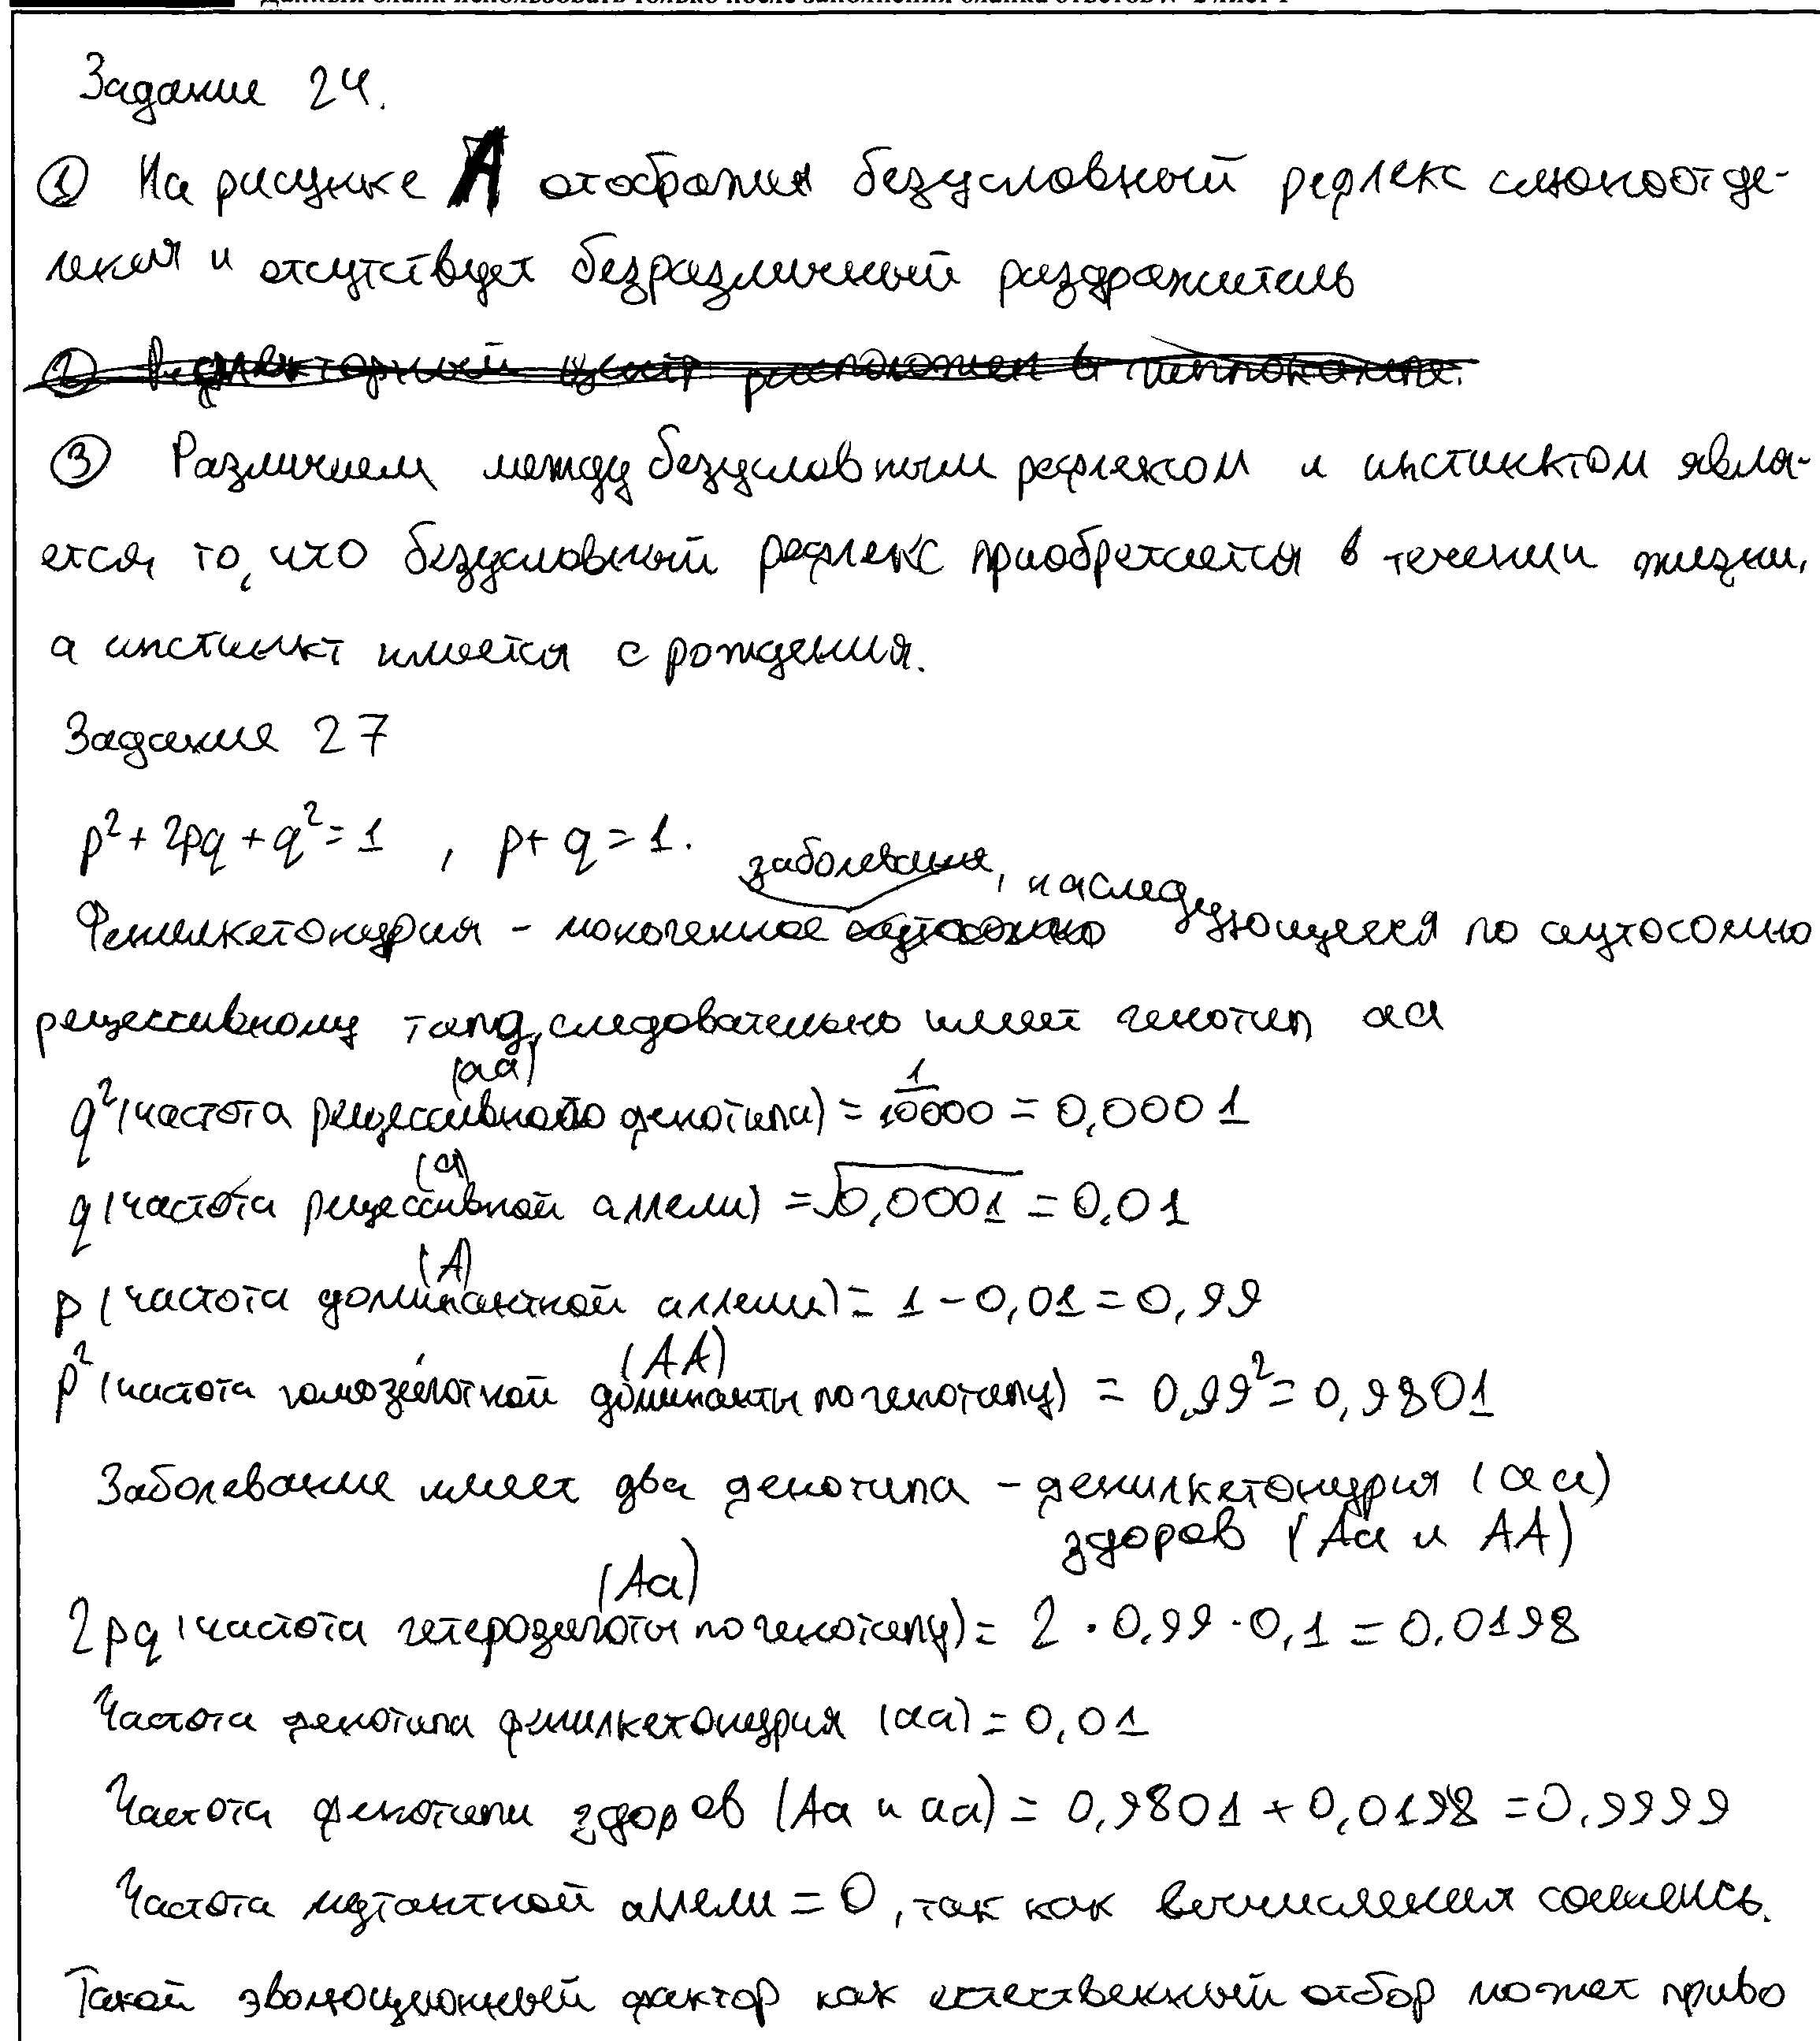 Задание 24.
① На рисунке А отображен безусловный рефлекс слюноотде-
ления и отсутствует безразличный раздражитель
② Рефлекторный центр расположен в гиппокампе.
③ Различием между безусловным рефлексом и инстинктом явля-
ется, то, что безусловный рефлекс приобретается в течении жизни,
а инстинкт имеется с рождения.
Задание 27
p² + 2pq + q² = 1 , p + q = 1.
Фенилкетонурия - моногенное заболевание, наследующееся по аутосомно
рецессивному типу, следовательно имеет генотип аа
q² (частота рецессивного фенотипа) (аа) = 1/10000 = 0,0001
q (частота рецессивной аллели) (а) = √0,0001 = 0,01
p (частота доминантной аллели) (А) = 1 - 0,01 = 0,99
p² (частота гомозиготной доминанты по генотипу) (АА) = 0,99² = 0,9801
Заболевание имеет два фенотипа - фенилкетонурия (аа)
здоров (Аа и АА)
2pq (частота гетерозиготы по генотипу) (Аа) = 2 · 0,99 · 0,1 = 0,0198
Частота фенотипа фенилкетонурия (аа) = 0,01
Частота фенотипа здоров (Аа и аа) = 0,9801 + 0,0198 = 0,9999
Частота мутантной аллели = 0, так как вычисления сошлись.
Такой эволюционный фактор как естественный отбор может приво